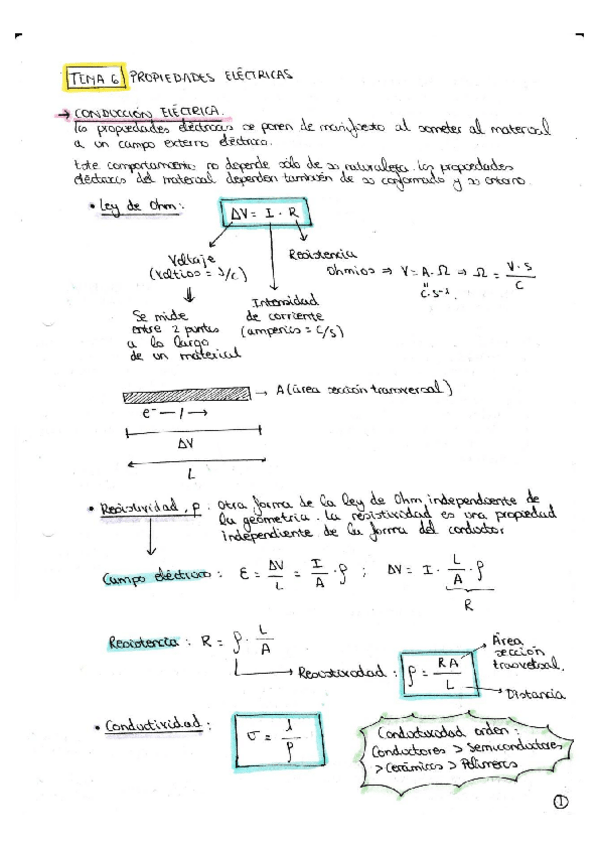 TEMA 6 PROPIEDADES ELÉCTRICAS
→ CONDUCCIÓN ELÉCTRICA.
Las propiedades eléctricas se ponen de manifiesto al someter al material
a un campo externo eléctrico.
Este comportamiento no depende sólo de su naturaleza. Las propiedades
eléctricas del material dependen también de su conformado y su entorno.
• Ley de Ohm:
ΔV = I · R
Voltaje
(voltios = J/C)
Resistencia
Ohmios ⇒ V = A·Ω ⇒ Ω = V·S / C
"
C·S⁻¹
Se mide
entre 2 puntos
a lo largo
de un material
Intensidad
de corriente
(amperios = C/S)
→ A (área sección transversal)
e⁻ — I →
ΔV
L
• Resistividad, ρ. Otra forma de la ley de Ohm independiente de
la geometría. La resistividad es una propiedad
independiente de la forma del conductor
Campo eléctrico: ε = ΔV/L = I/A · ρ ; ΔV = I · L/A · ρ
R
Resistencia: R = ρ · L/A
Resistividad: ρ = RA/L
Área
sección
trasversal.
Distancia
• Conductividad:
σ = 1/ρ
Conductividad orden:
Conductores > Semiconductores
> Cerámicos > Polímeros
1